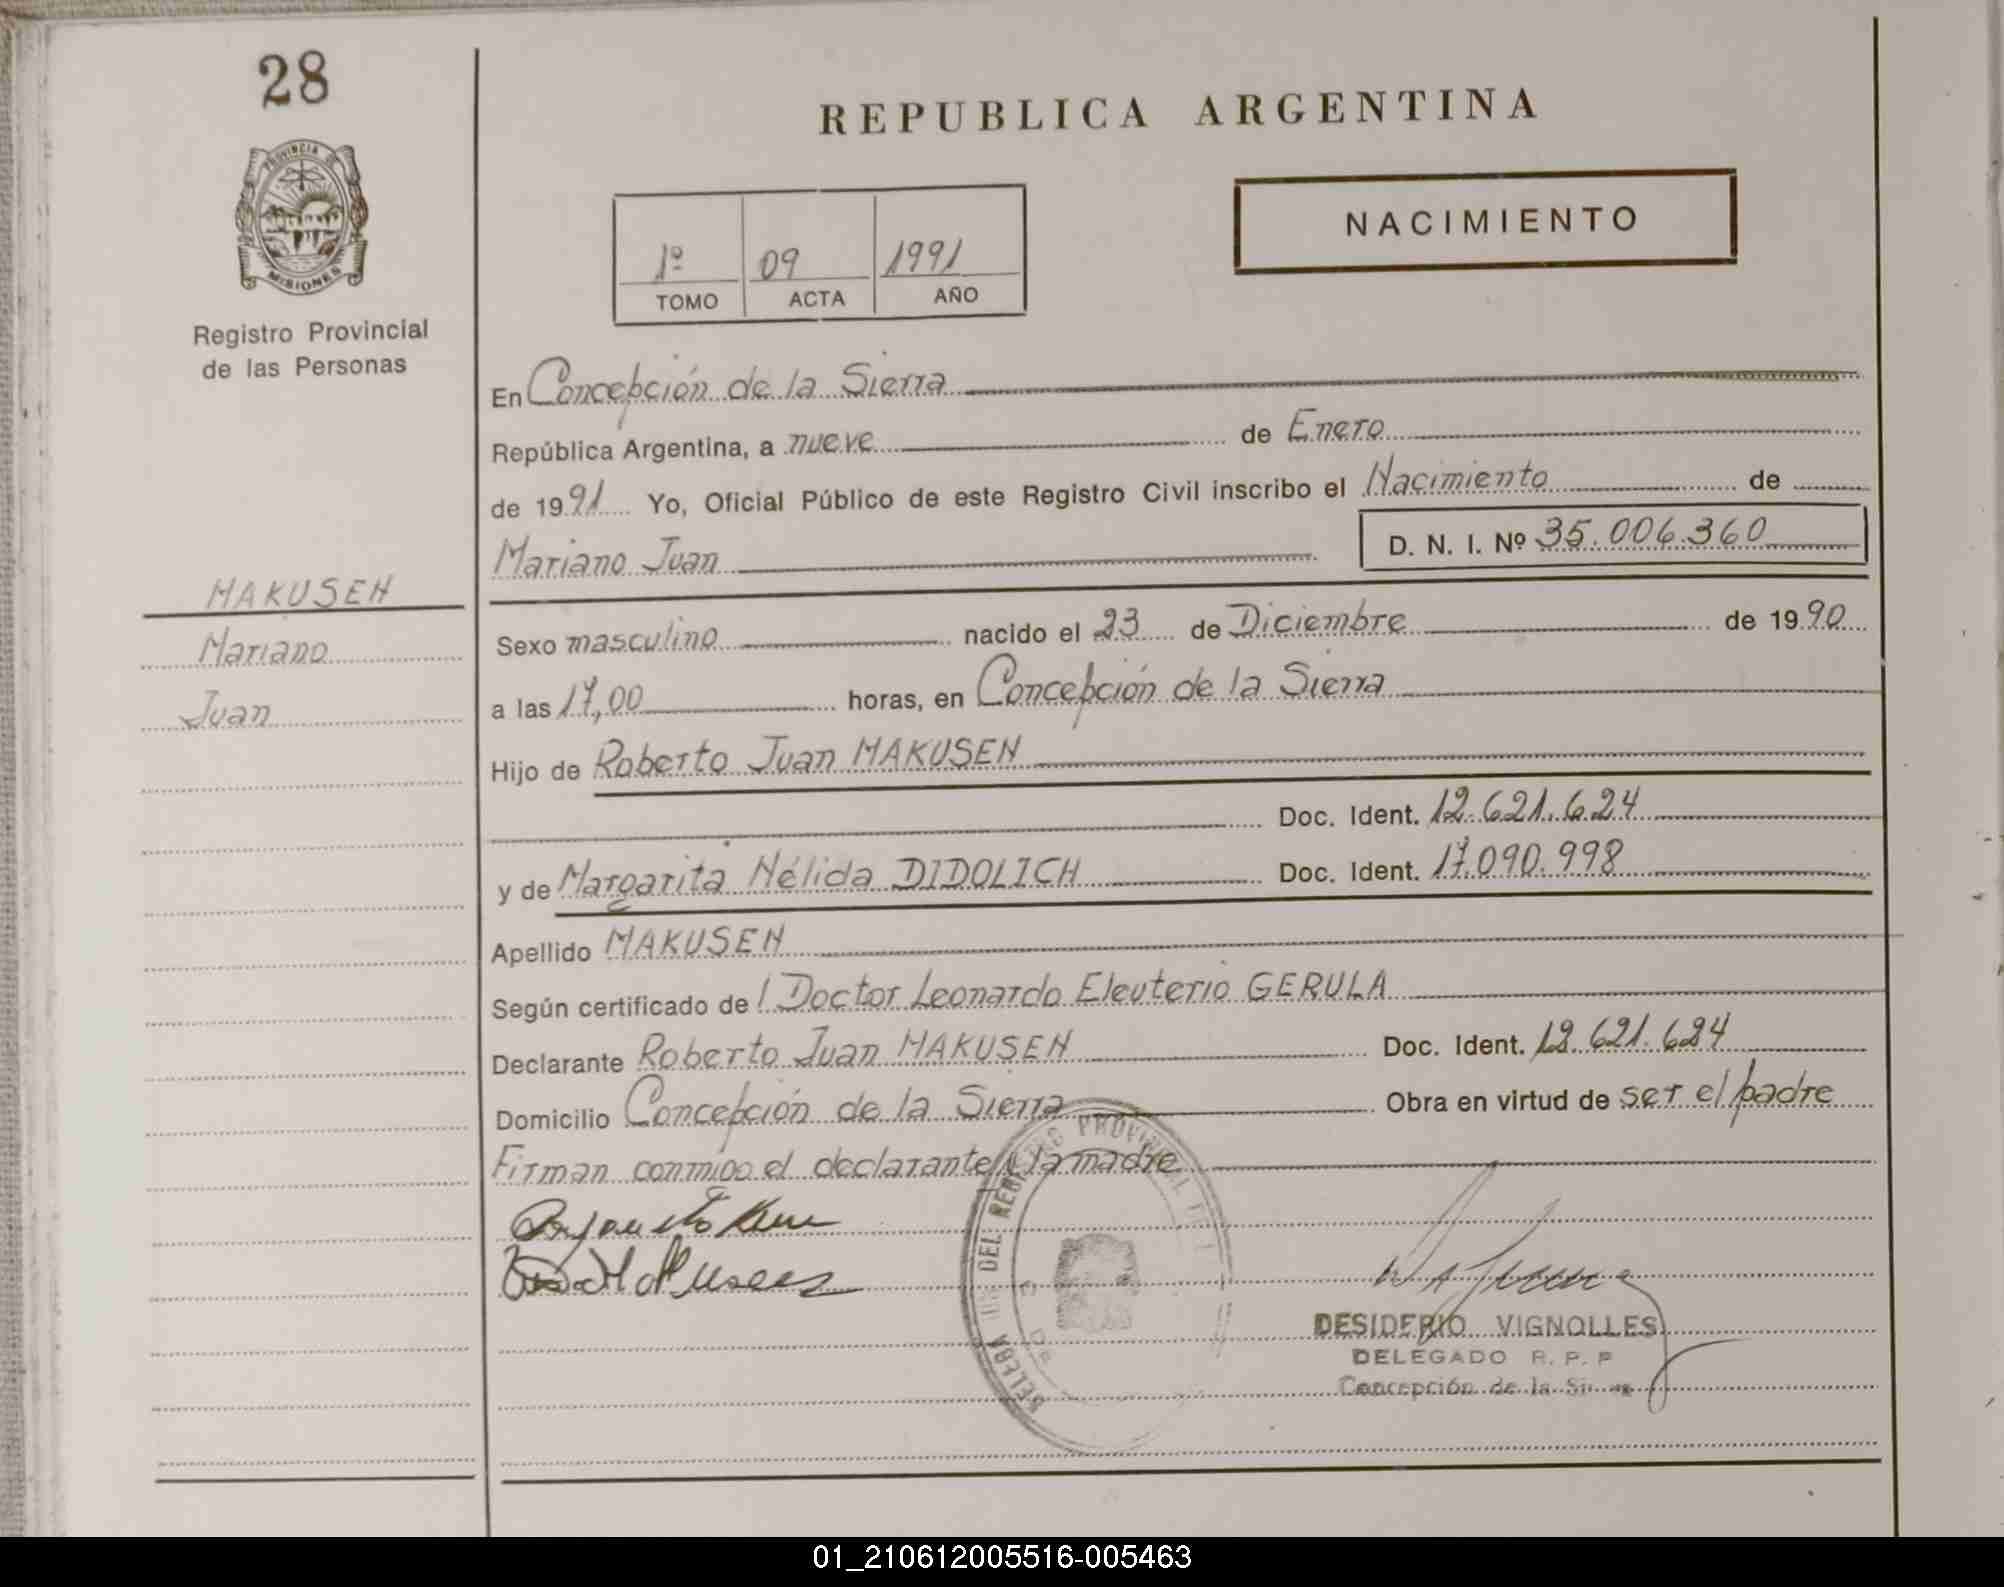 28
PROVINCIA DE
MISIONES
Registro Provincial
de las Personas
MAKUSEN
Mariano
Juan
REPUBLICA ARGENTINA
NACIMIENTO
1º 09 1991
TOMO ACTA AÑO
En Concepción de la Sierra
República Argentina, a nueve de Enero
de 1991 Yo, Oficial Público de este Registro Civil inscribo el Nacimiento de
Mariano Juan D. N. I. Nº 35.006.360
Sexo masculino nacido el 23 de Diciembre de 1990
a las 17,00 horas, en Concepción de la Sierra
Hijo de Roberto Juan MAKUSEN
Doc. Ident. 12.621.624
y de Margarita Nélida DIDOLICH Doc. Ident. 17.090.998
Apellido MAKUSEN
Según certificado de l Doctor Leonardo Eleuterio GERULA
Declarante Roberto Juan MAKUSEN Doc. Ident. 12.621.624
Domicilio Concepción de la Sierra Obra en virtud de ser el padre
Firman conmigo el declarante y la madre
DESIDERIO VIGNOLLES
DELEGADO R. P. P
Concepción de la
01_210612005516-005463